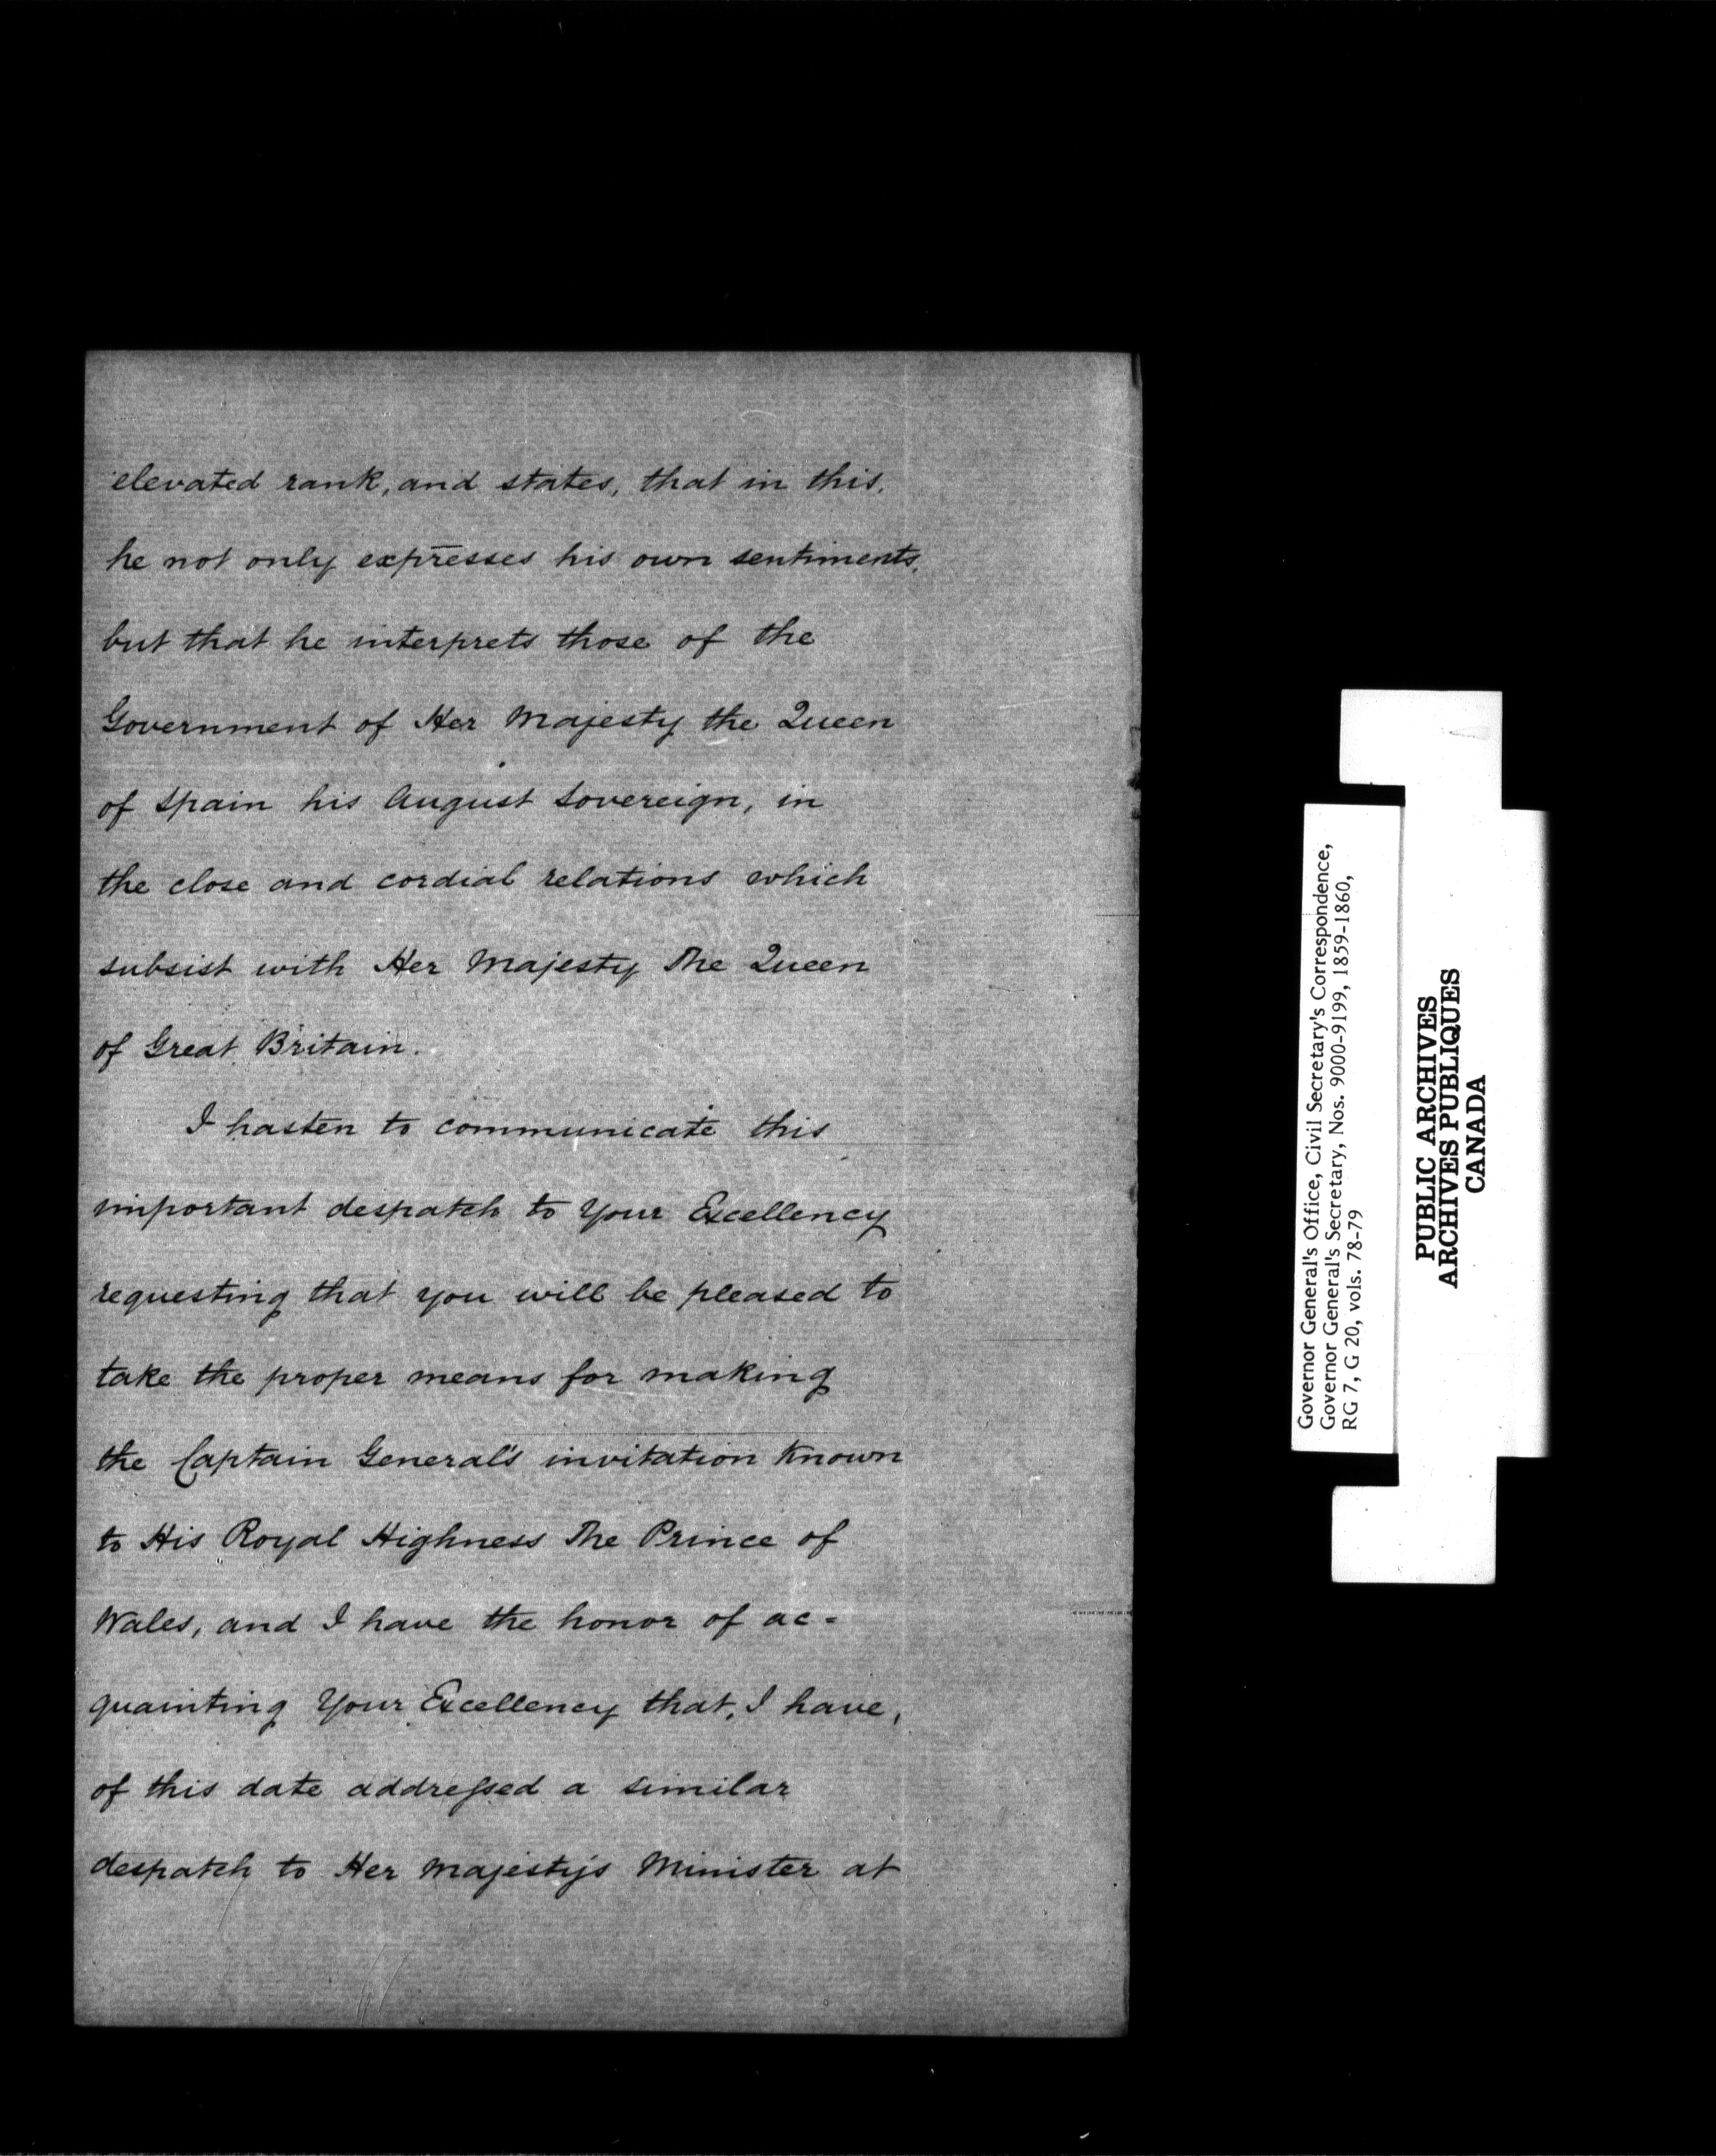 elevated rank, and states, that in this,
he not only expresses his own sentiments,
but that he interprets those of the
Government of Her Majesty the Queen
of Spain his August Sovereign, in
the close and cordial relations which
subsist with Her Majesty The Queen
of Great Britain.
I hasten to communicate this
important despatch to Your Excellency
requesting that you will be pleased to
take the proper means for making
the Captain General's invitation known
to His Royal Highness The Prince of
Wales, and I have the honor of ac=
quainting Your Excellency that, I have,
of this date addreſsed a similar
despatch to Her Majesty's Minister at
Governor General's Office, Civil Secretary's Correspondence,
Governor General's Secretary, Nos. 9000-9199, 1859-1860,
RG 7, G 20, vols. 78-79
PUBLIC ARCHIVES
ARCHIVES PUBLIQUES
CANADA